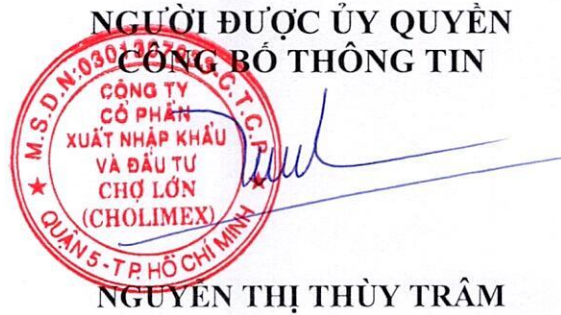 NGƯỜI ĐƯỢC ỦY QUYỀN
CÔNG BỐ THÔNG TIN
CÔNG TY
CỔ PHẦN
XUẤT NHẬP KHẨU
VÀ ĐẦU TƯ
CHỢ LỚN
(CHOLIMEX)
QUẬN 5 - T.P. HỒ CHÍ MINH
NGUYỄN THỊ THÙY TRÂM